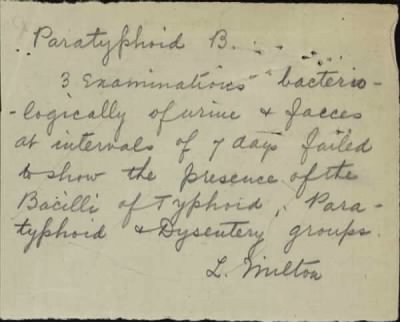 Paratyphoid B.
3 Examinations bacterio-
-logically of urine & faeces
at intervals of 7 days failed
to show the presence of the
Bacilli of Typhoid, Para-
typhoid & Dysentery groups.
L. Milton